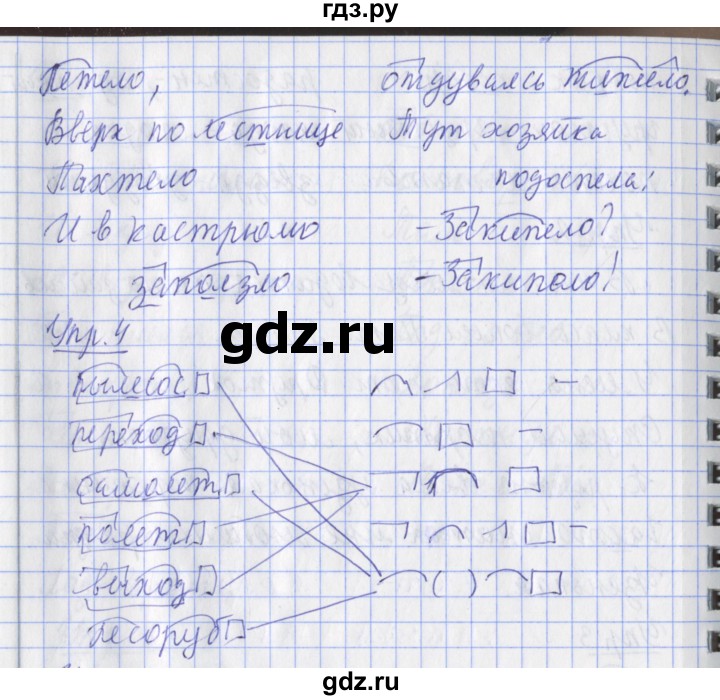 гдз.ру
Пехтело, отдуваясь тяжело,
Вверх по лестнице Тут хозяйка
Пахтело подоспела:
И в кастрюлю - Закипело?
заползло - Закипело!
gdz.ru
Упр. 4
пылесос
переход
самолёт
полёт
выход
лесоруб
gdz.ru